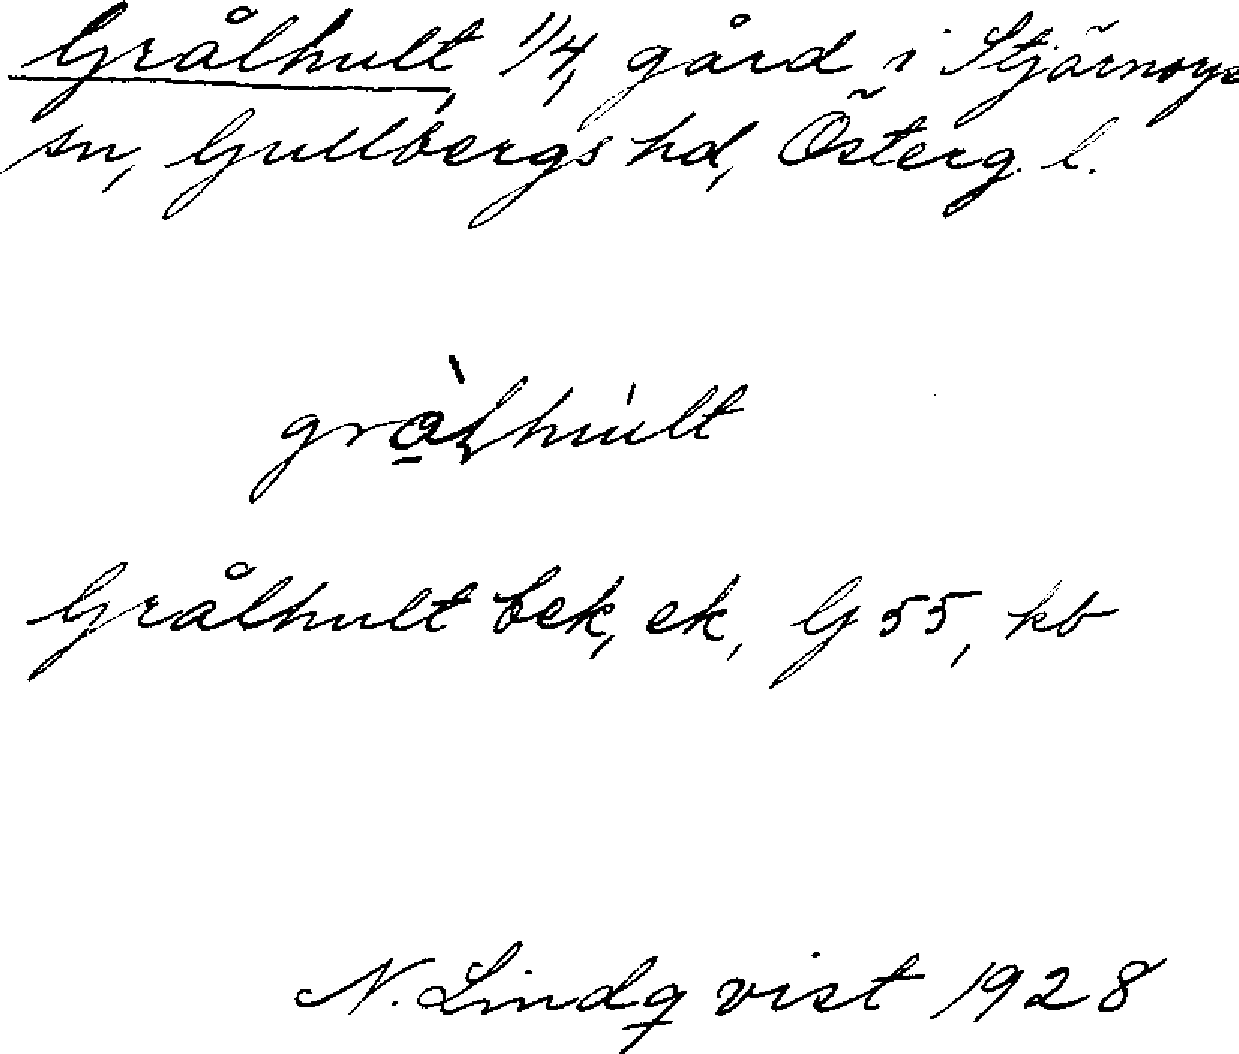 Grålhult 1/4, gård i Stjärnorps
sn, Gullbergs hd, Österg. l.
grạ̀lhu̍lt
Grålhult bek, ek, G 55, kb
N. Lindqvist 1928